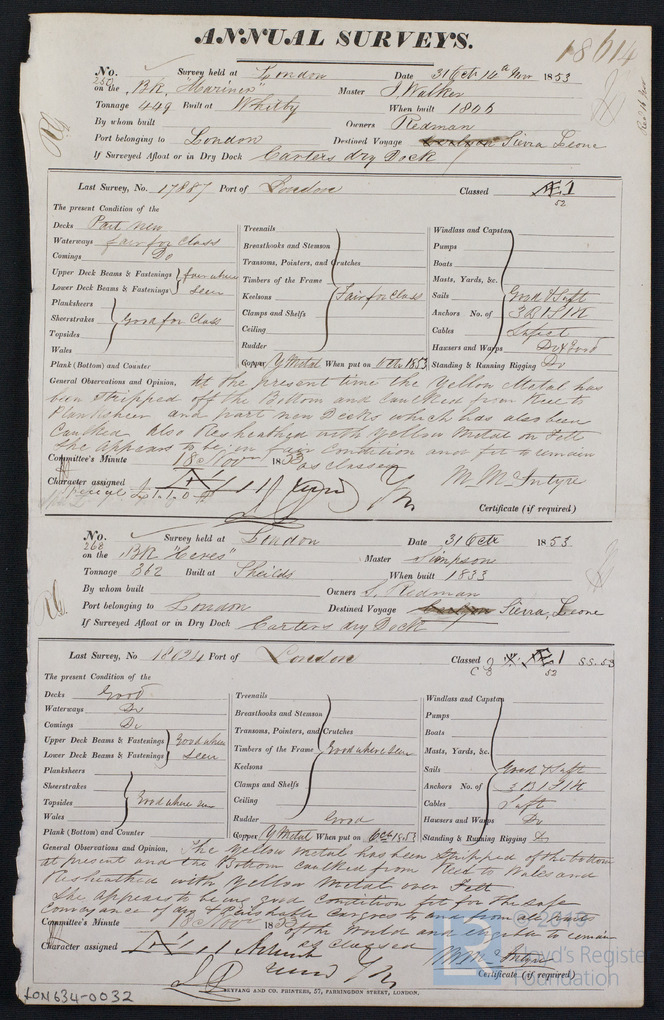 ANNUAL SURVEYS.
18614
No. 250 Survey held at London Date 31 Oct 14th Nov 1853
on the BK "Mariner" Master J Walker
Tonnage 449 Built at Whitby When built
By whom built Owners Redman
Port belonging to London Destined Voyage Sierra Leone
If Surveyed Afloat or in Dry Dock Carters dry Dock
Last Survey, No. 17887 Port of London Classed Æ 1
52
The present Condition of the
Decks Part New
Waterways fair for Class
Comings Do
Upper Deck Beams & Fastenings fair where
Lower Deck Beams & Fastenings seen
Planksheers
Sheerstrakes Good for Class
Topsides
Wales
Plank (Bottom) and Counter
Treenails
Breasthooks and Stemson
Transoms, Pointers, and Crutches
Timbers of the Frame
Keelsons Fair for Class
Clamps and Shelfs
Ceiling
Rudder
Copper Y Metal When put on 1853
Windlass and Capstan
Pumps
Boats
Masts, Yards, &c.
Sails Good & Suft
Anchors No. of 3 B 1 S 1 K
Cables Sufict
Hawsers and Warps Do & Good
Standing & Running Rigging Do
General Observations and Opinion, At the present time the Yellow Metal has
been stripped off the Bottom and Caulked from Keel to
Planksheer and part new Decks which has also been
Caulked. Also Resheathed with Yellow Metal on Felt
She Appears to be in fair Condition and fit to remain
as classed
Committee's Minute 18 Nov 1853
Character assigned A 1
M McIntyre
Certificate (if required)
No. 268 Survey held at London Date 31 Octr 1853
on the BK "Ceres" Master Simpson
Tonnage 362 Built at Sheilds When built 1833
By whom built Owners S. Redman
Port belonging to London Destined Voyage Sierra Leone
If Surveyed Afloat or in Dry Dock Carters dry Dock
Last Survey, No 18024 Port of London Classed Æ 1 SS. 53
52
The present Condition of the
Decks Good
Waterways Do
Comings Do
Upper Deck Beams & Fastenings Good where
Lower Deck Beams & Fastenings seen
Planksheers
Sheerstrakes
Topsides Good where seen
Wales
Plank (Bottom) and Counter
Treenails
Breasthooks and Stemson
Transoms, Pointers, and Crutches
Timbers of the Frame Good where seen
Keelsons
Clamps and Shelfs
Ceiling
Rudder Good
Copper Y Metal When put on Oct 1853
Windlass and Capstan
Pumps
Boats
Masts, Yards, &c.
Sails Good & Suft
Anchors No. of 3 B 1 S 1 K
Cables Suft
Hawsers and Warps Do
Standing & Running Rigging Do
General Observations and Opinion, The Yellow Metal has been Stripped of the bottom
at present and the Bottom caulked from Keel to Wales and
Resheathed with Yellow Metal over Felt
She Appears to be in good Condition fit for the safe
Conveyance of dry & Perishable Cargoes to and from all parts
of the World and eligible to remain
as Classed
Committee's Minute 18 Nov 1853
Character assigned Æ 1
M McIntyre
Certificate (if required)
SEYFANG AND CO. PRINTERS, 57, FARRINGDON STREET, LONDON.
LON634-0032
© 2019
Lloyd's Register
Foundation